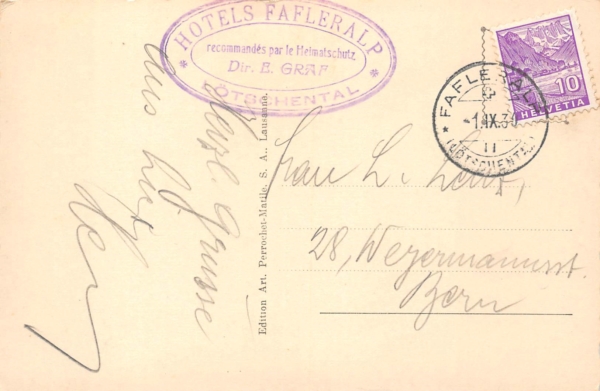 HOTELS FAFLERALP
recommandés par le Heimatschutz
Dir. E. GRAF
LÖTSCHENTAL
10
HELVETIA
FAFLERALP
-1.IX.34
11
(LÖTSCHENTAL)
Herzl. Grüsse
aus
Edition Art. Perrochet-Matile, S. A., Lausanne.
Frau L.
28, Weyermannsst.
Bern